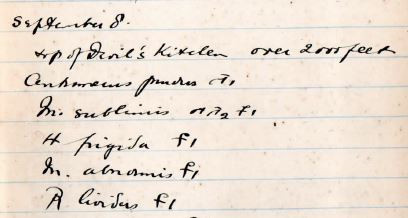 September 8.
top of Devil's Kitchen over 2000 feet
pudens ♂1
M. sublimis ♂♂2 f1
H frigida f1
M. abnormis f1
A lividus f1